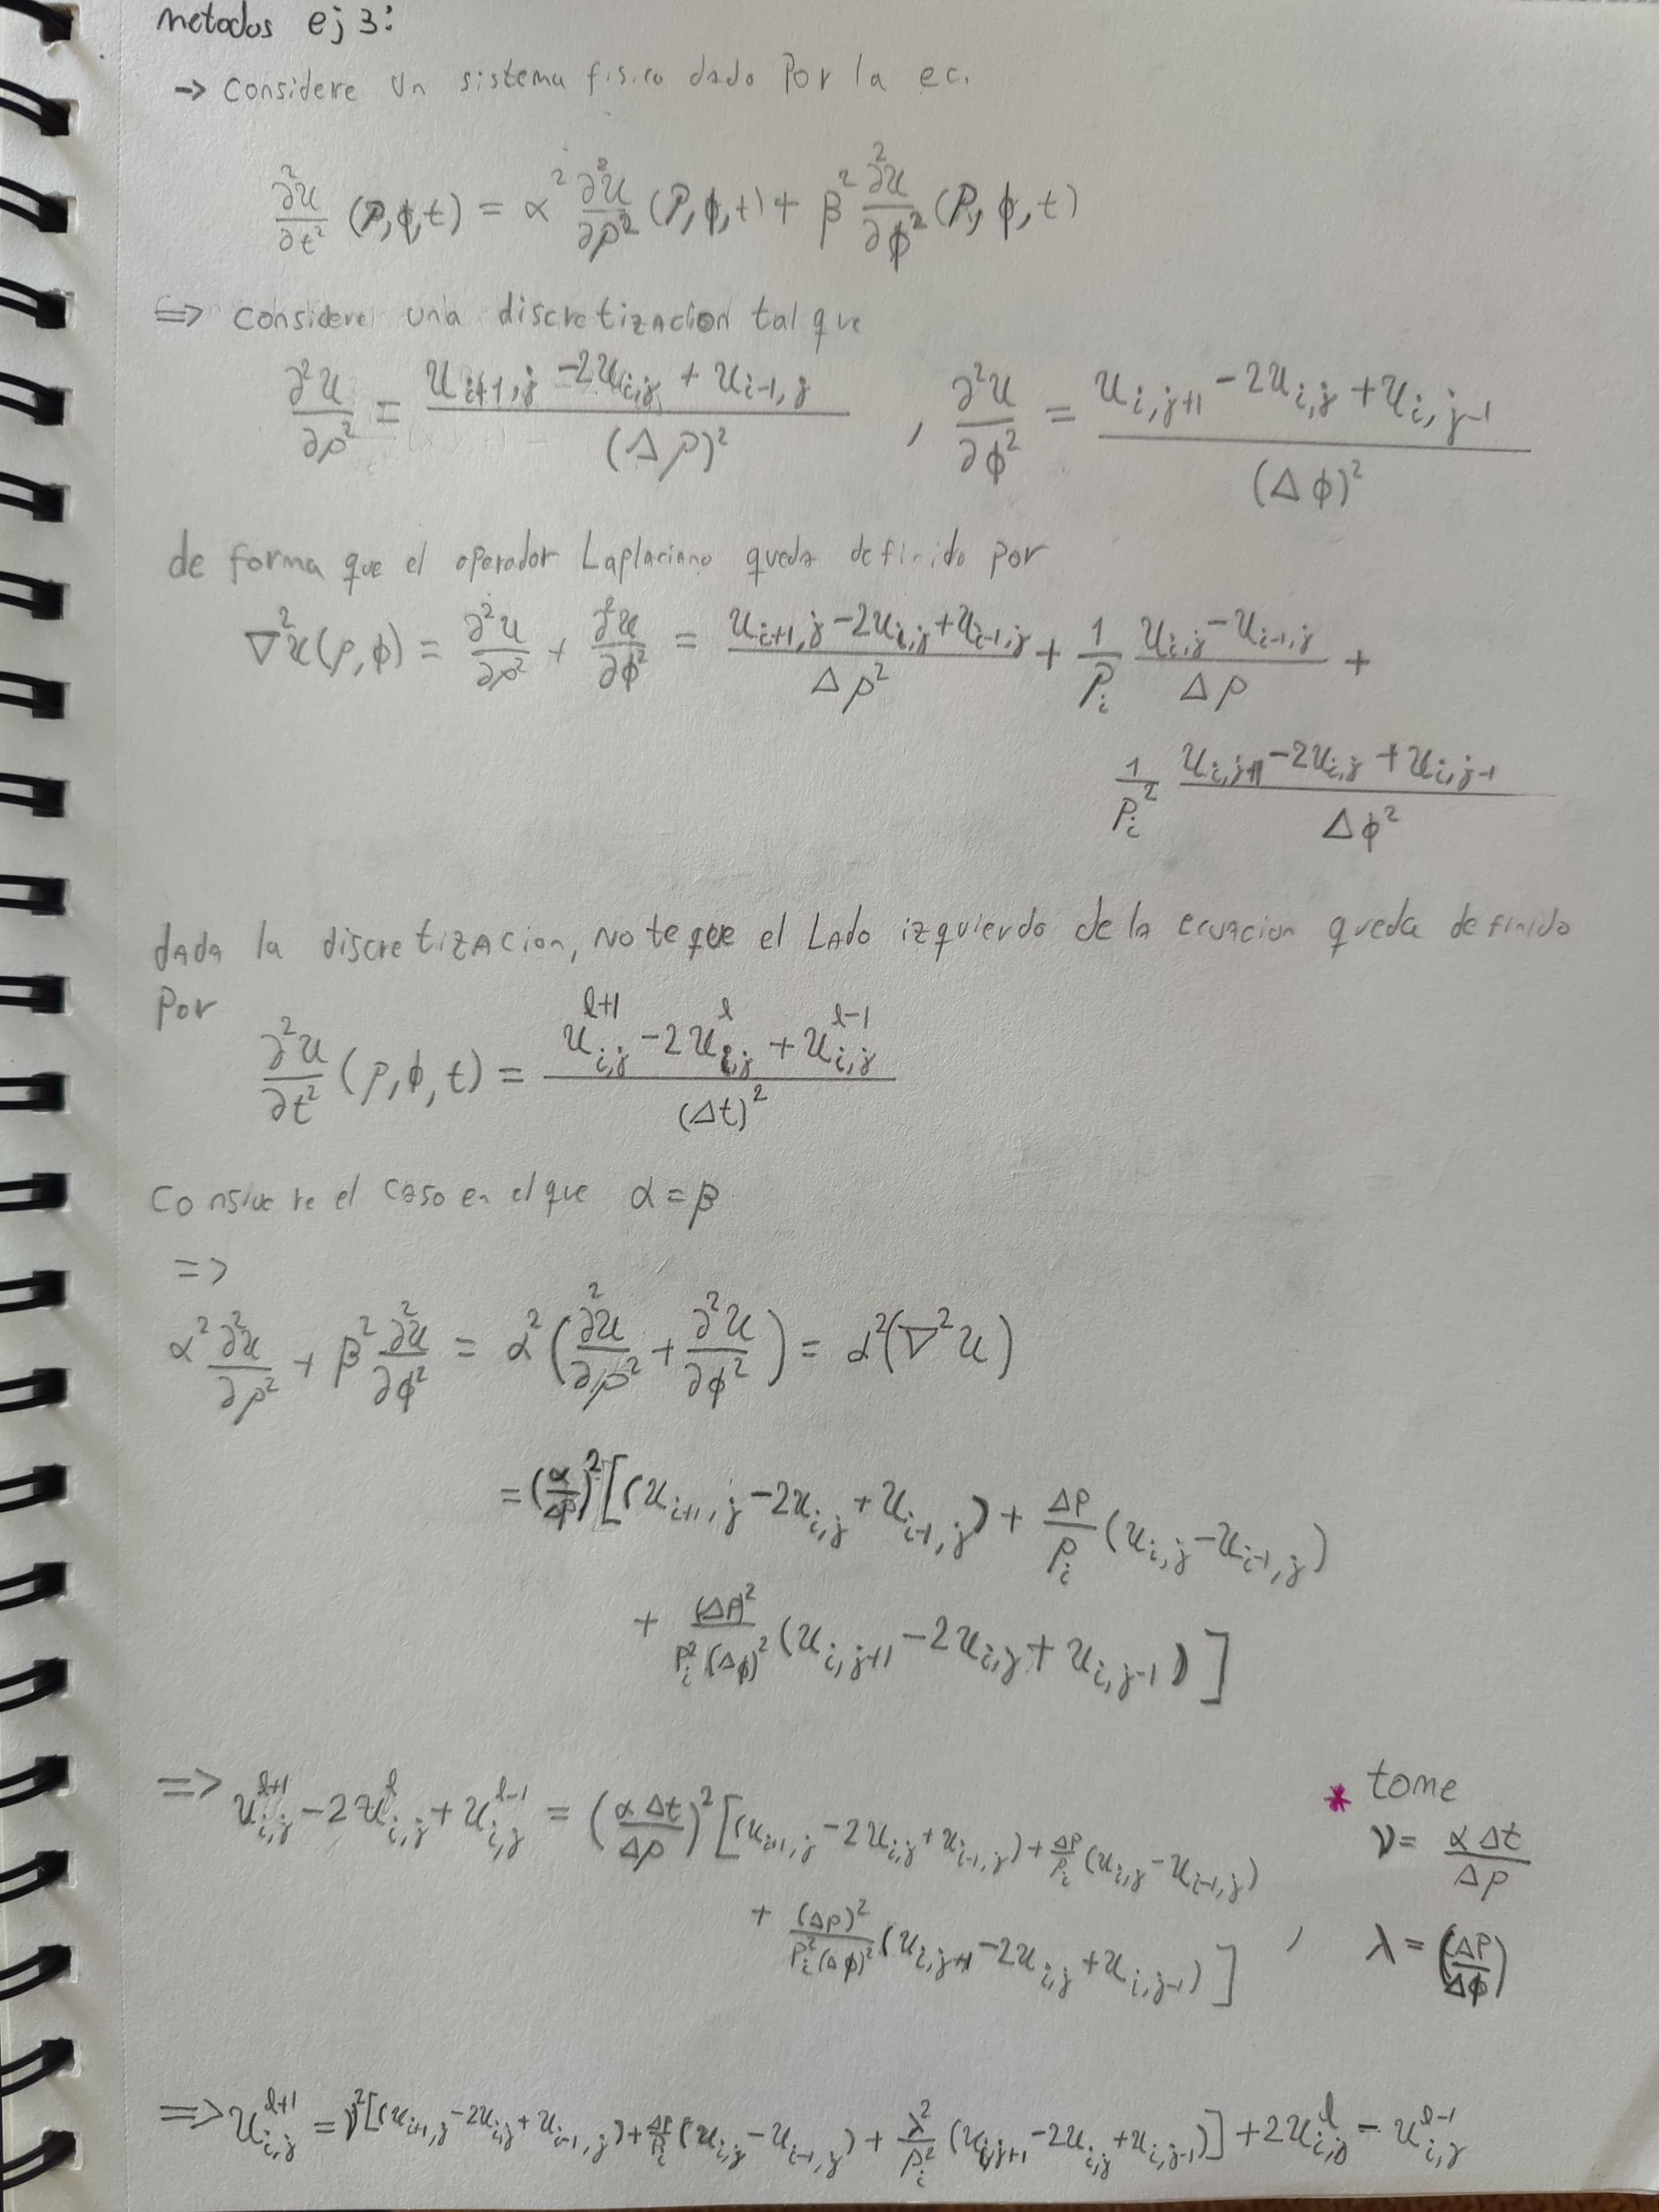 metodos ej 3:
→ Considere un sistema fisico dado por la ec.
∂²u/∂t² (ρ,ϕ,t) = α² ∂²u/∂ρ² (ρ,ϕ,t) + β² ∂²u/∂ϕ² (ρ,ϕ,t)
⇒ Considere una discretización tal que
∂²u/∂ρ² = (u_{i+1,j} - 2u_{i,j} + u_{i-1,j})/(Δρ)² , ∂²u/∂ϕ² = (u_{i,j+1} - 2u_{i,j} + u_{i,j-1})/(Δϕ)²
de forma que el operador Laplaciano queda definido por
∇²u(ρ,ϕ) = ∂²u/∂ρ² + ∂²u/∂ϕ² = (u_{i+1,j} - 2u_{i,j} + u_{i-1,j})/Δρ² + 1/ρ_i (u_{i,j} - u_{i-1,j})/Δρ +
1/ρ_i² (u_{i,j+1} - 2u_{i,j} + u_{i,j-1})/Δϕ²
dada la discretizacion, Note que el Lado izquierdo de la ecuacion queda definido
por
∂²u/∂t² (ρ,ϕ,t) = (u^{l+1}_{i,j} - 2u^{l}_{i,j} + u^{l-1}_{i,j})/(Δt)²
el caso en el que α = β
=>
α² ∂²u/∂ρ² + β² ∂²u/∂ϕ² = α² (∂²u/∂ρ² + ∂²u/∂ϕ²) = α²(∇²u)
= (α/Δρ)² [(u_{i+1,j} - 2u_{i,j} + u_{i-1,j}) + Δρ/ρ_i (u_{i,j} - u_{i-1,j})
+ (Δρ)²/ρ_i²(Δϕ)² (u_{i,j+1} - 2u_{i,j} + u_{i,j-1})]
=> u^{l+1}_{i,j} - 2u^{l}_{i,j} + u^{l-1}_{i,j} = (αΔt/Δρ)² [(u_{i+1,j} - 2u_{i,j} + u_{i-1,j}) + Δρ/ρ_i (u_{i,j} - u_{i-1,j})
+ (Δρ)²/ρ_i²(Δϕ)² (u_{i,j+1} - 2u_{i,j} + u_{i,j-1})] ,
* tome
ν = αΔt/Δρ
λ = (Δρ/Δϕ)
=> u^{l+1}_{i,j} = ν²[(u_{i+1,j} - 2u_{i,j} + u_{i-1,j}) + Δρ/ρ_i (u_{i,j} - u_{i-1,j}) + λ²/ρ_i² (u_{i,j+1} - 2u_{i,j} + u_{i,j-1})] + 2u^{l}_{i,j} - u^{l-1}_{i,j}